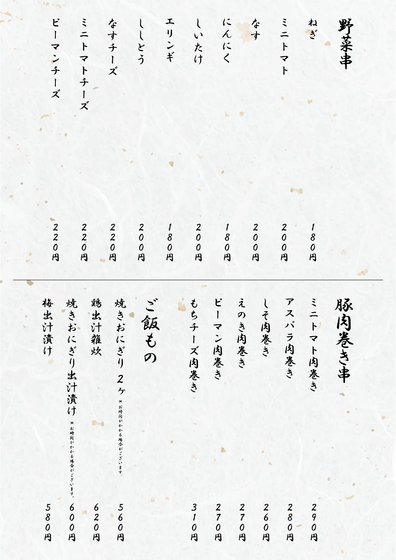 野菜串
ねぎ 180円
ミニトマト 200円
なす 200円
にんにく 180円
しいたけ 200円
エリンギ 180円
ししとう 200円
なすチーズ 220円
ミニトマトチーズ 220円
ピーマンチーズ 220円
豚肉巻き串
ミニトマト肉巻き 290円
アスパラ肉巻き 280円
しそ肉巻き 260円
えのき肉巻き 270円
ピーマン肉巻き 270円
もちチーズ肉巻き 310円
ご飯もの
焼きおにぎり 2ヶ ※お時間がかかる場合がございます。 560円
鶏出汁雑炊 620円
焼きおにぎり出汁漬け ※お時間がかかる場合がございます。 600円
梅出汁漬け 580円